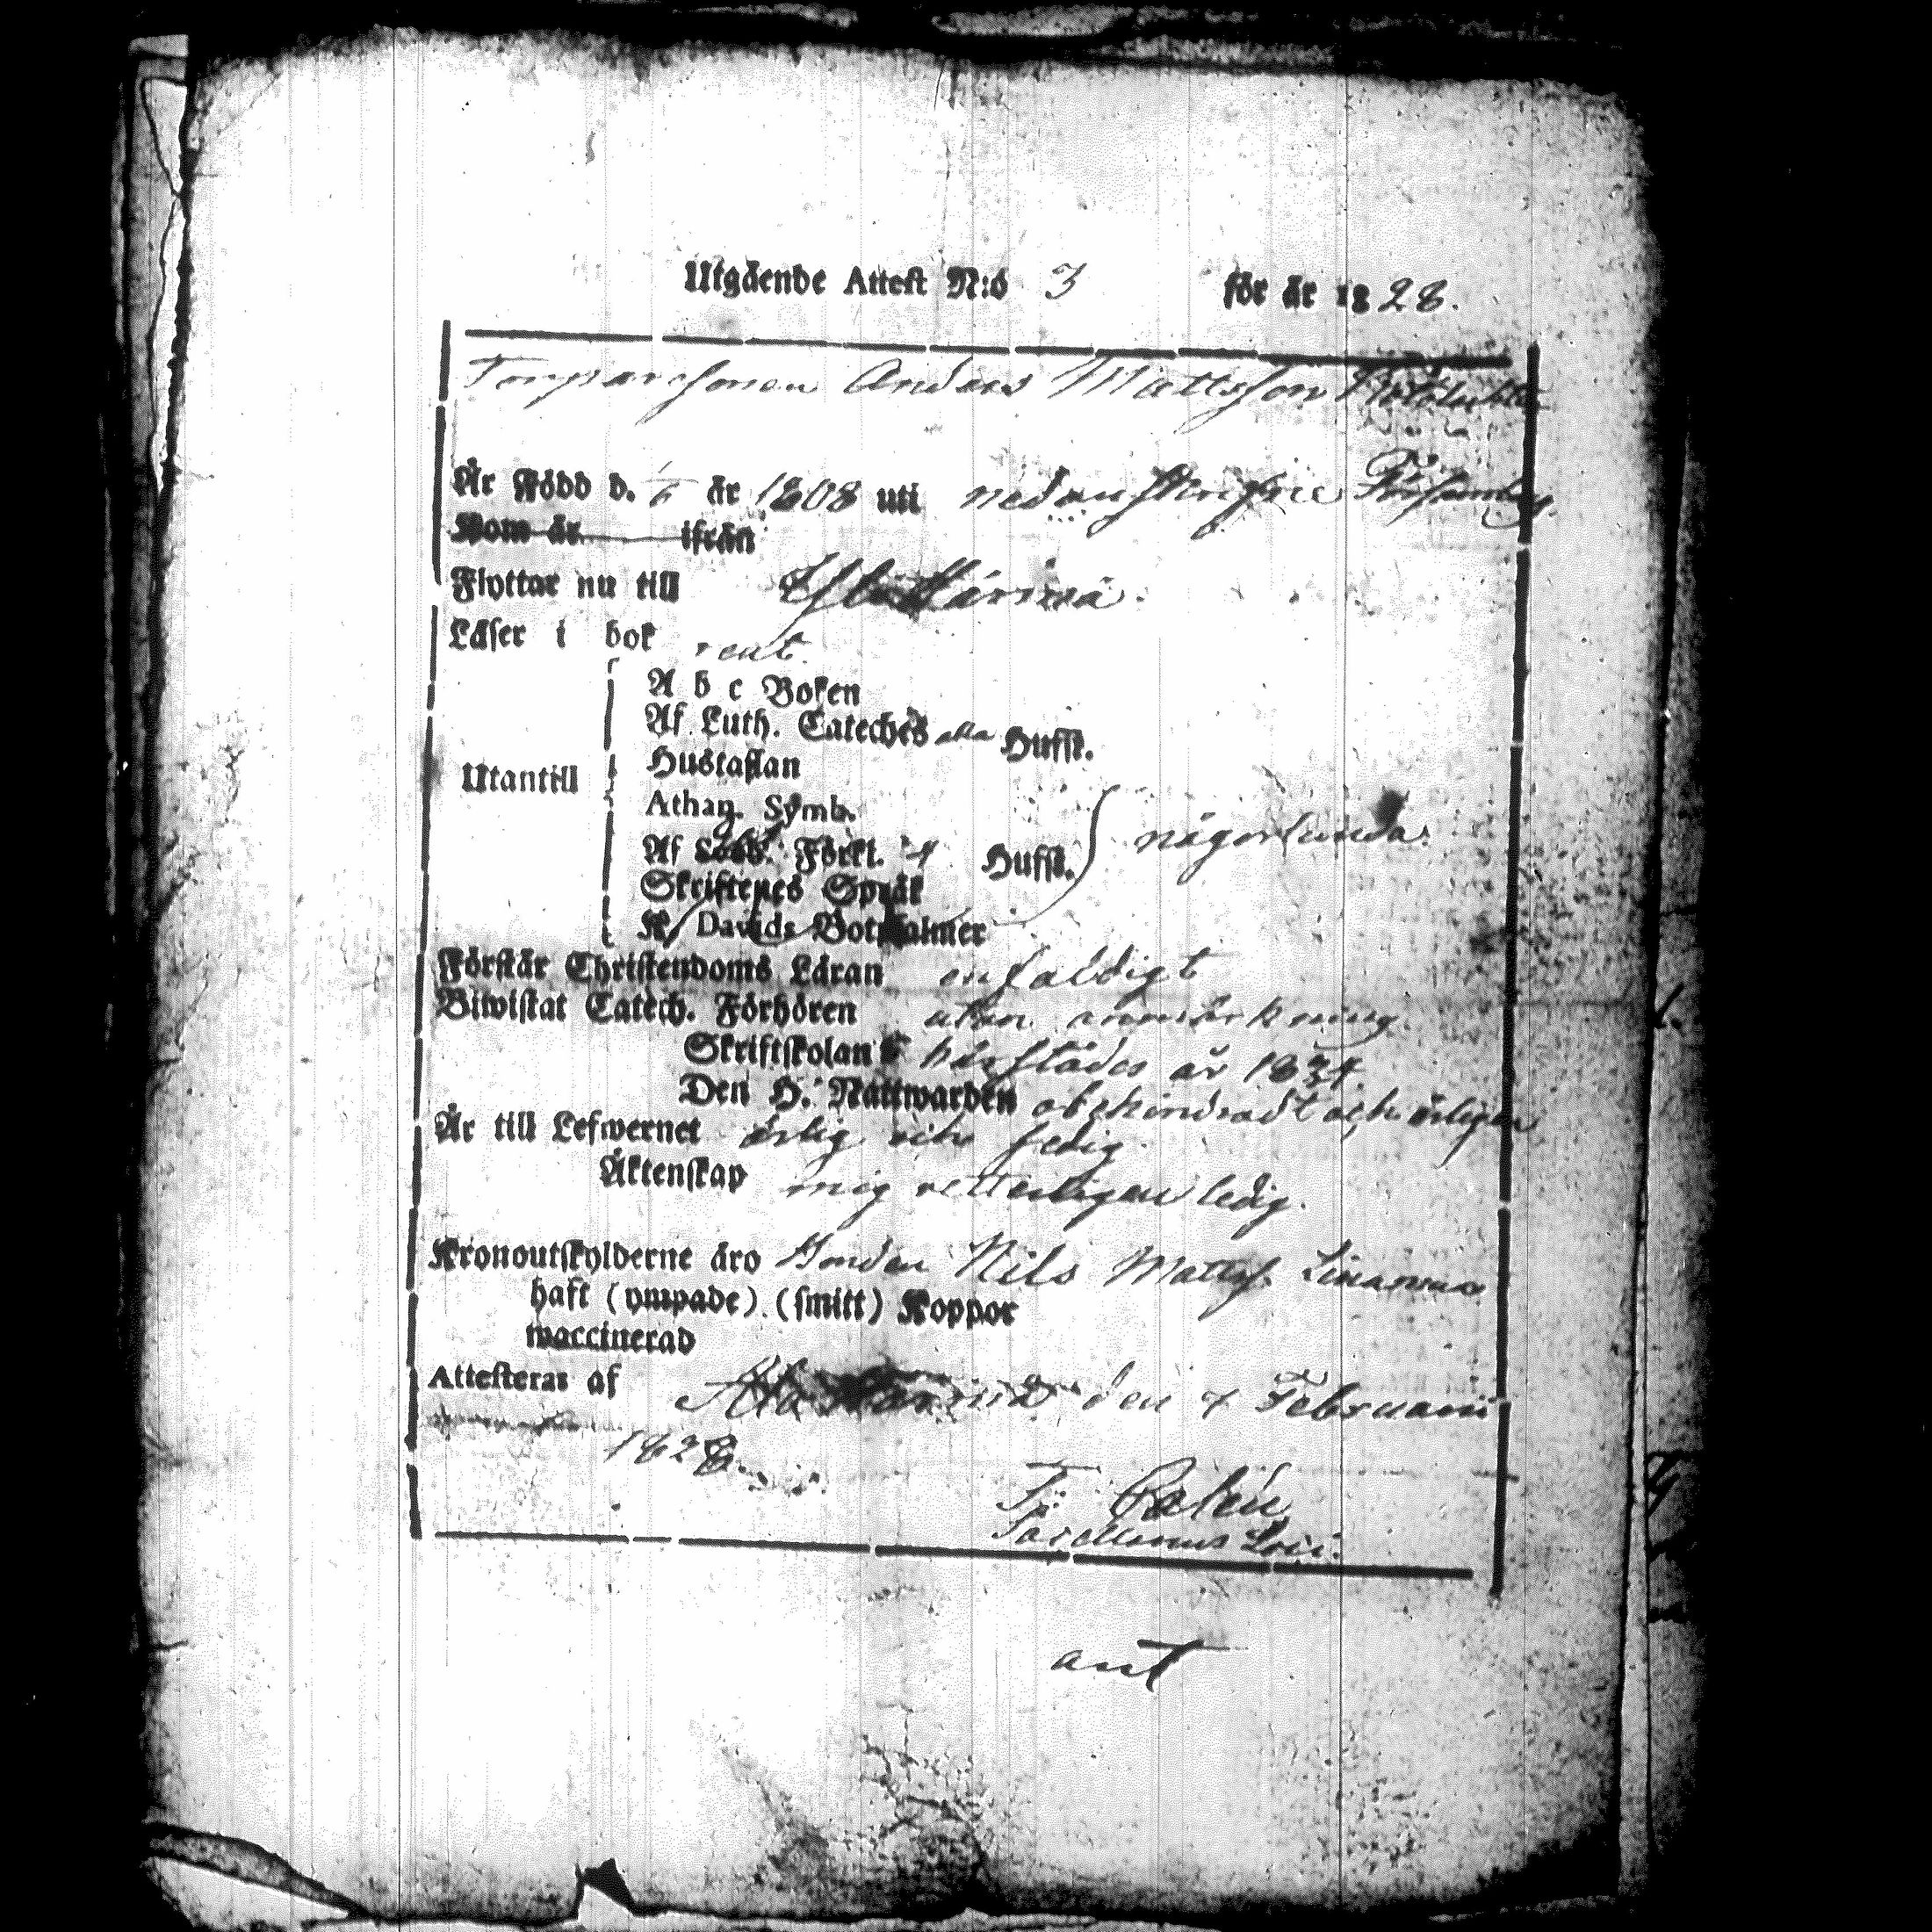 Utgående Attest N:o 3 för år 1828.
Torparesonen Anders Mattsson
Är Född d. 1/6 år 1808 uti nedanskrifne Församling
Kom år ifrån
Flyttar nu till
Läser i bok rent.
A b c Boken
Af Luth. Cateches alla Hufst.
Hustaflan
Utantill
Athan. Symb.
Af Förkl. 4 Hufst. någorlunda.
Skriftenes Språk
K. Davids Botpsalmer
Förstår Christendoms Läran enfaldigt
Biwistat Catech. Förhören utan anmärkning
Skriftskolan härstädes år
Den H. Nattwarden obehindradt och årligen
Är till Lefwernet ärlig och fredig
Äktenskap mig vetterligen ledig.
Kronoutskylderne äro Nils Mattss.
haft (ympade) (smitt) Koppor
waccinerad
Attesteras af den 7 Februarii
1828.